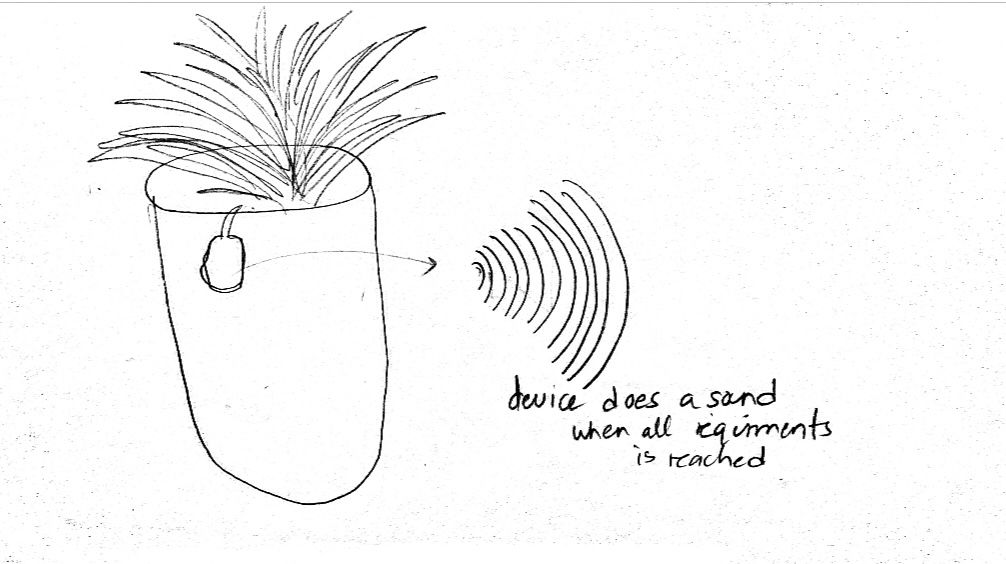 device does a sand
when all reqirments
is reached